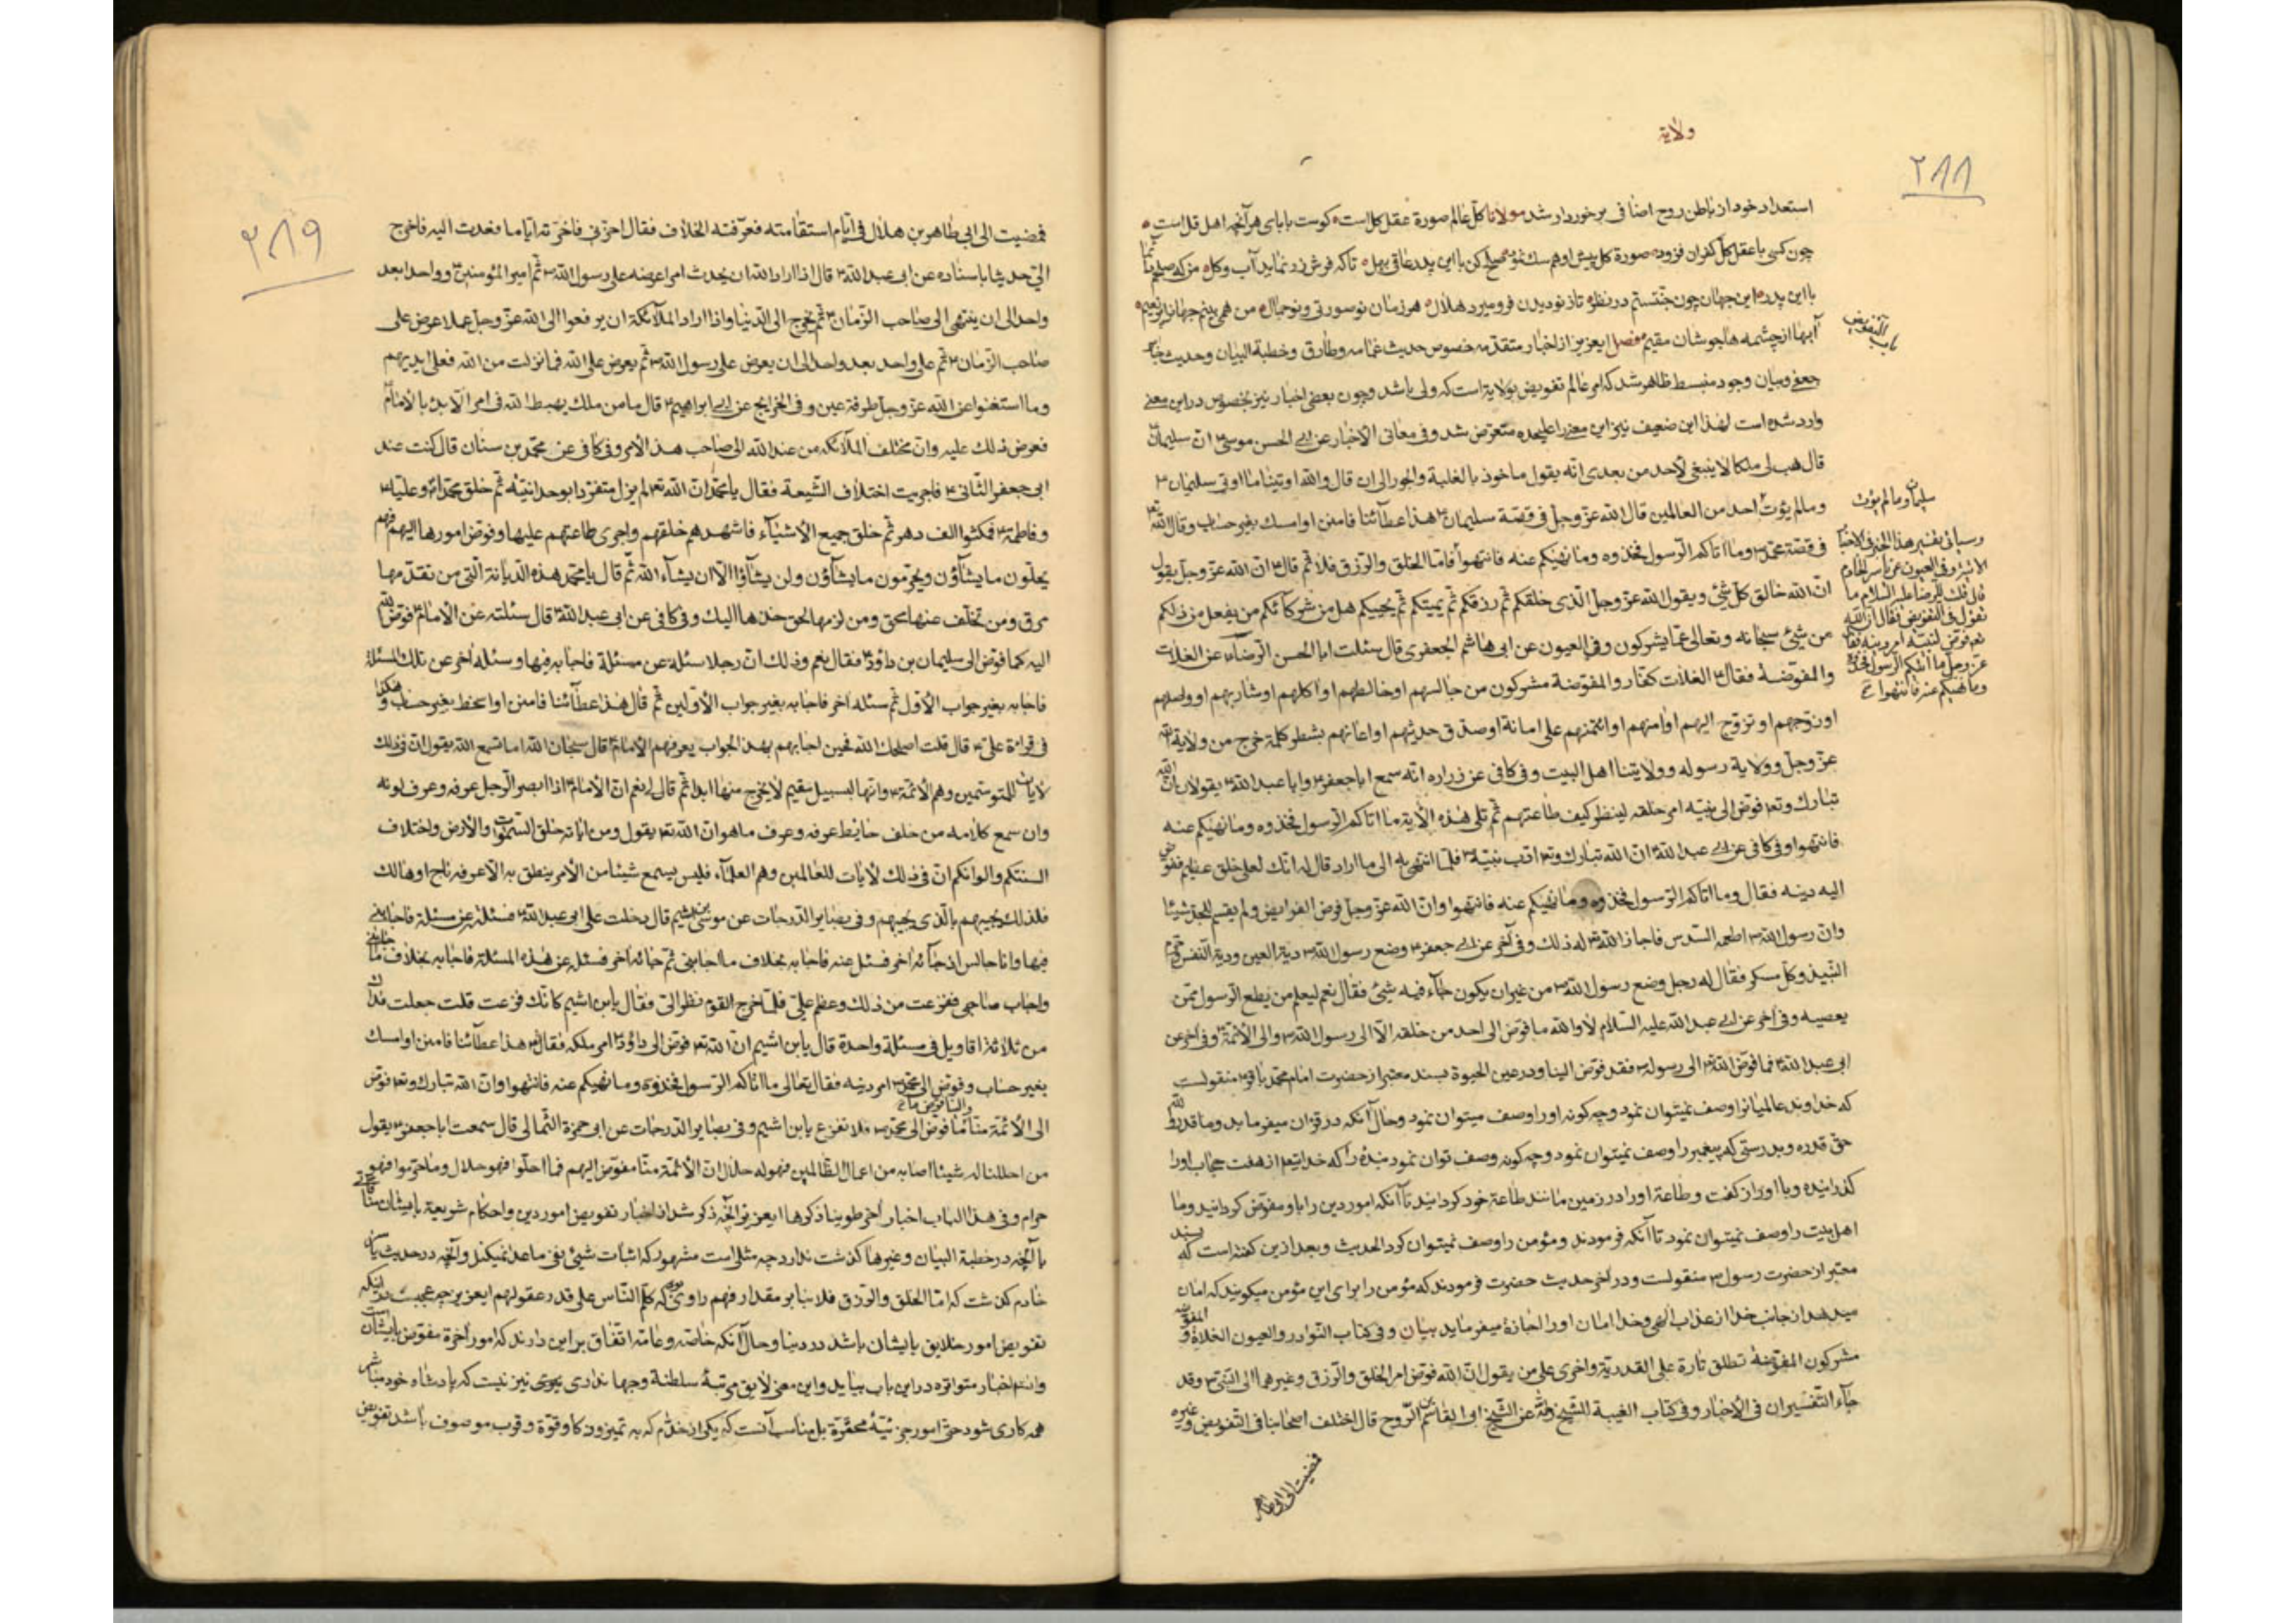 ولاية
٢٨٨
استعداد خود از باطن روح اضافی برخوردار شد مولانا کل عالم صورة عقل کل است کوست بابای هر آنچه اهل قل است
چون کسی با عقل کل کفران فزود صورة کل پیش او هم سک نمود صلح کن با این پدر عاقی بهل تا که فرش زر نماید آب و کل من که صلحم دائما
با این پدر این جهان چون جنتستم در نظر تاز نو دیدن فرو میرد ملال هر زمان نو سورتی و نو جمال من همی بینم جهانرا پر نعیم
آبها از چشمه ها جوشان مقیم فصل ایعزیز از اخبار متقدمه خصوص حدیث غمامه و طارق و خطبة البیان و حدیث
جعفی و بیان وجود منبسط ظاهر شد که امر عالم تفویض بولایة است که ولی باشد و چون بعضی اخبار نیز بخصوص در این معنی
وارد شده است لهذا این ضعیف نیز این معنی را علیحده متعرض شد و فی معانی الأخبار عن ابی الحسن موسی ان سلیمان
قال هب لی ملکا لا ینبغی لأحد من بعدی انه یقول ماخوذ بالغلبة والجور الی ان قال والله اوتینا ما اوتی سلیمان
وما لم یؤت احد من العالمین قال الله عز وجل فی قصة سلیمان هذا عطاؤنا فامنن او امسک بغیر حساب وقال الله
فی قصة محمد وما اتاکم الرسول فخذوه وما نهیکم عنه فانتهوا فاما الخلق والرزق فلا ثم قال ان الله عز وجل یقول
ان الله خالق کل شئ ویقول الله عز وجل الذی خلقکم ثم رزقکم ثم یمیتکم ثم یحییکم هل من شرکائکم من یفعل من ذلکم
من شئ سبحانه وتعالی عما یشرکون وفی العیون عن ابی هاشم الجعفری قال سئلت ابا الحسن الرضا عن الغلات
والمفوضة فقال الغلات کفار والمفوضة مشرکون من جالسهم او خالطهم او اکلهم او شاربهم او واصلهم
او زوجهم او تزوج الیهم او امنهم او ائتمنهم علی امانة او صدق حدیثهم او اعانهم بشطر کلمة خرج من ولایة الله
عز وجل وولایة رسوله وولایتنا اهل البیت وفی کافی عن زراره انه سمع ابا جعفر وابا عبد الله یقولان ان الله
تبارک وتعالی فوض الی نبیه امر خلقه لینظر کیف طاعتهم ثم تلی هذه الایة ما اتاکم الرسول فخذوه وما نهیکم عنه
فانتهوا وفی کافی عن ابی عبد الله ان الله تبارک وتع ادب نبیه فلما انتهی به الی ما اراد قال له انک لعلی خلق عظیم ففوض
الیه دینه فقال وما اتاکم الرسول فخذوه وما نهیکم عنه فانتهوا وان الله عز وجل فرض الفرایض ولم یقسم للجد شیئا
وان رسول الله اطعمه السدس فاجاز الله له ذلک وفی آخر عن ابی جعفر وضع رسول الله دیة العین ودیة النفس وحرم
النبیذ وکل مسکر فقال له رجل وضع رسول الله من غیر ان یکون جاء فیه شئ فقال نعم لیعلم من یطع الرسول ممن
یعصیه وفی آخر عن ابی عبد الله علیه السلام لا والله ما فوض الی احد من خلقه الا الی رسول الله والی الأئمة وفی آخر عن
ابی عبد الله فما فوض الله الی رسوله فقد فوض الینا ودر عین الحیوة بسند معتبر از حضرت امام محمد باقر منقولست
که خداوند عالمیانرا وصف نمیتوان نمود و چه کونه او را وصف میتوان نمود وحال آنکه در قران میفرماید وما قدروا الله
حق قدره وبدرستی که پیغمبر را وصف نمیتوان نمود و چه کونه وصف توان نمود بنده را که خدایتع از هفت حجاب او را
کذرانیده و با او راز کفت و طاعة او را در زمین مانند طاعة خود کردانید تا آنکه امور دین را باو مفوض کردانید وما
اهل بیت را وصف نمیتوان نمود تا آنکه فرمودند ومؤمن را وصف نمیتوان کرد الحدیث وبعد ازین کفته است که بسند
معتبر از حضرت رسول منقولست و در آخر حدیث حضرت فرمودند که مؤمن را برای این مؤمن میکویند که امان
میدهد از جانب خدا از عذاب الهی وخدا امان او را اجازة میفرماید بیان وفی کتاب النوادر والعیون الغلاة والمفوضة
مشرکون المفوضة تطلق تارة علی القدریة واخری علی من یقول ان الله فوض امر الخلق والرزق وغیرهما الی النبی وقد
جاء التفسیران فی الأخبار وفی کتاب الغیبة للشیخ عن الشیخ ابو القاسم الروح قال اختلف اصحابنا فی التفویض وغیره
فمضیت الی ابی طاهر
باب التفویض
سلیمان وما لم یؤت
وسیاتی تفسیر هذا الخبر فی الاخبار
الاتیة وفی العیون عن یاسر الخادم
قال قلت للرضا علیه السلام ما
تقول فی التفویض فقال ان الله
تع فوض لنبیه امر دینه فقال
عز وجل ما اتیکم الرسول فخذوه
وما نهیکم عنه فانتهوا
٢٨٩
فمضیت الی ابی طاهر بن هلال فی ایام استقامته فعرفته الخلاف فقال اخرنی فاخرته ایاما فغدت الیه فاخرج
الی حدیثا باسناده عن ابی عبد الله قال اذا اراد الله ان یحدث امرا عرضه علی رسول الله ثم امیر المؤمنین وواحدا بعد
واحد الی ان ینتهی الی صاحب الزمان ثم یخرج الی الدنیا واذا اراد الملائکة ان یرفعوا الی الله عز وجل عملا عرض علی
صاحب الزمان ثم علی واحد بعد واحد الی ان یعرض علی رسول الله ثم یعرض علی الله فما نزلت من الله فعلی ایدیهم
وما استغنوا عن الله عز وجل طرفة عین وفی الخرایج عن ابی ابراهیم قال ما من ملک یهبط الله فی امر الا بدء بالأمام
فعرض ذلک علیه وان مختلف الملائکة من عند الله الی صاحب هذا الأمر وفی کافی عن محمد بن سنان قال کنت عند
ابی جعفر الثانی فاجریت اختلاف الشیعة فقال یا محمد ان الله تع لم یزل متفردا بوحدانیته ثم خلق محمدا وعلیا
وفاطمة فمکثوا الف دهر ثم خلق جمیع الأشیاء فاشهدهم خلقهم واجری طاعتهم علیها وفوض امورها الیهم فهم
یحلون ما یشاؤن ویحرمون ما یشاؤن ولن یشاؤا الا ان یشاء الله ثم قال یا محمد هذه الدیانة التی من تقدمها
مرق ومن تخلف عنها محق ومن لزمها لحق خذها الیک وفی کافی عن ابی عبد الله قال سئلته عن الأمام فوض الله
الیه کما فوض الی سلیمان بن داؤد فقال نعم وذلک ان رجلا سئله عن مسئلة فاجابه فیها وسئله آخر عن تلک المسئلة
فاجابه بغیر جواب الأول ثم سئله آخر فاجابه بغیر جواب الأولین ثم قال هذا عطاؤنا فامنن او اعط بغیر حساب وهکذا
فی قراءة علی قال قلت اصلحک الله فحین اجابهم بهذا الجواب یعرفهم الأمام قال سبحان الله اما تسمع الله یقول ان فی ذلک
لأیات للمتوسمین وهم الأئمة وانها لبسبیل مقیم لا یخرج منها ابدا ثم قال لی نعم ان الأمام اذا ابصر الرجل عرفه وعرف لونه
وان سمع کلامه من خلف حایط عرفه وعرف ما هو ان الله تع یقول ومن ایاته خلق السموات والأرض واختلاف
السنتکم والوانکم ان فی ذلک لأیات للعالمین وهم العلماء فلیس یسمع شیئا من الأمر ینطق به الا عرفه ناج او هالک
فلذلک یجیبهم بالذی یجیبهم وفی بصایر الدرجات عن موسی بن اشیم قال دخلت علی ابی عبد الله فسئلته عن مسئلة فاجابنی
فیها وانا جالس اذ جائه آخر فسئل عنه فاجابه بخلاف ما اجابنی ثم جائه آخر فسئل عن هذه المسئلة فاجابه بخلاف ما اجابنی
واجاب صاحبی ففزعت من ذلک وعظم علی فلما خرج القوم نظر الی وقال یابن اشیم کانک فزعت قلت جعلت فداک
من ثلاثة اقاویل فی مسئلة واحدة قال یابن اشیم ان الله تع فوض الی داؤد امر ملکه فقال هذا عطاؤنا فامنن او امسک
بغیر حساب وفوض الی محمد امر دینه فقال تعالی ما اتاکم الرسول فخذوه وما نهیکم عنه فانتهوا وان الله تبارک وتع فوض
والینا فوض ما
الی الأئمة منا ما فوض الی محمد فلا تفزع یابن اشیم وفی بصایر الدرجات عن ابی حمزة الثمالی قال سمعت ابا جعفر یقول
من احللنا له شیئا اصابه من اعمال الظالمین فهو له حلال ان الأئمة منا مفوض الیهم فما احلوا فهو حلال وما حرموا فهو
حرام وفی هذا الباب اخبار آخر طوینا ذکرها ایعزیز آنچه ذکر شد از اخبار تفویض امور دین واحکام شریعة بایشان منافاتی
با آنچه در خطبة البیان وغیرها کذشت ندارد چه مثلی است مشهور که اثبات شیئی نفی ما عدا نمیکند وآنچه در حدیث یاسر
خادم کذشت که اما الخلق والرزق فلا بنا بر مقدار فهم راوی بود که کلم الناس علی قدر عقولهم ایعزیز چه عجبست
تفویض امور خلایق بایشان باشد در دنیا وحال آنکه خاصه وعامه اتفاق بر این دارند که امور آخرة مفوض بایشان است
اخبار متواتره در این باب بیاید واین معنی لایق مرتبۀ سلطنة وجهانداری نیز نیست که پادشاه خود مباشر
همه کاری شود حتی امور جزئیۀ محقرة بل مناسب آنست که یکی از خدام که به تمیز وزکا وقوة وقرب موصوف باشد تفویض